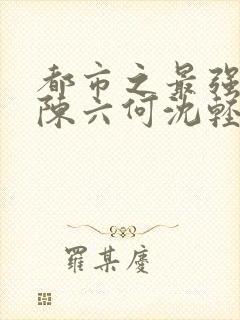 都市之最强
陈六何沈轻
羅某慶